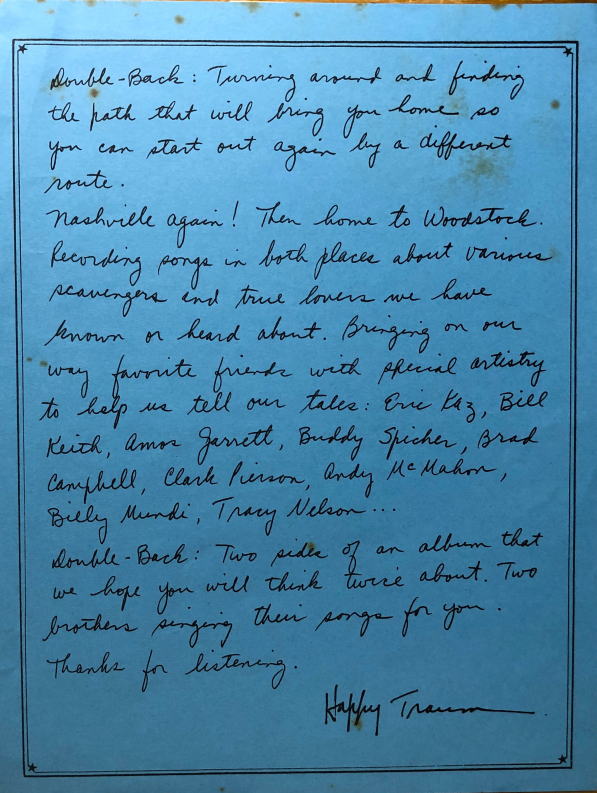 Double-Back: Turning around and finding
the path that will bring you home so
you can start out again by a different
route.
Nashville again! Then home to Woodstock.
Recording songs in both places about various
scavengers and true lovers we have
known or heard about. Bringing on our
way favorite friends with special artistry
to help us tell our tales: Eric Kaz, Bill
Keith, Amos Garrett, Buddy Spicher, Brad
Campbell, Clark Pierson, Andy McMahon,
Billy Mundi, Tracy Nelson...
Double-Back: Two sides of an album that
we hope you will think twice about. Two
brothers singing their songs for you.
Thanks for listening.
Happy Traum